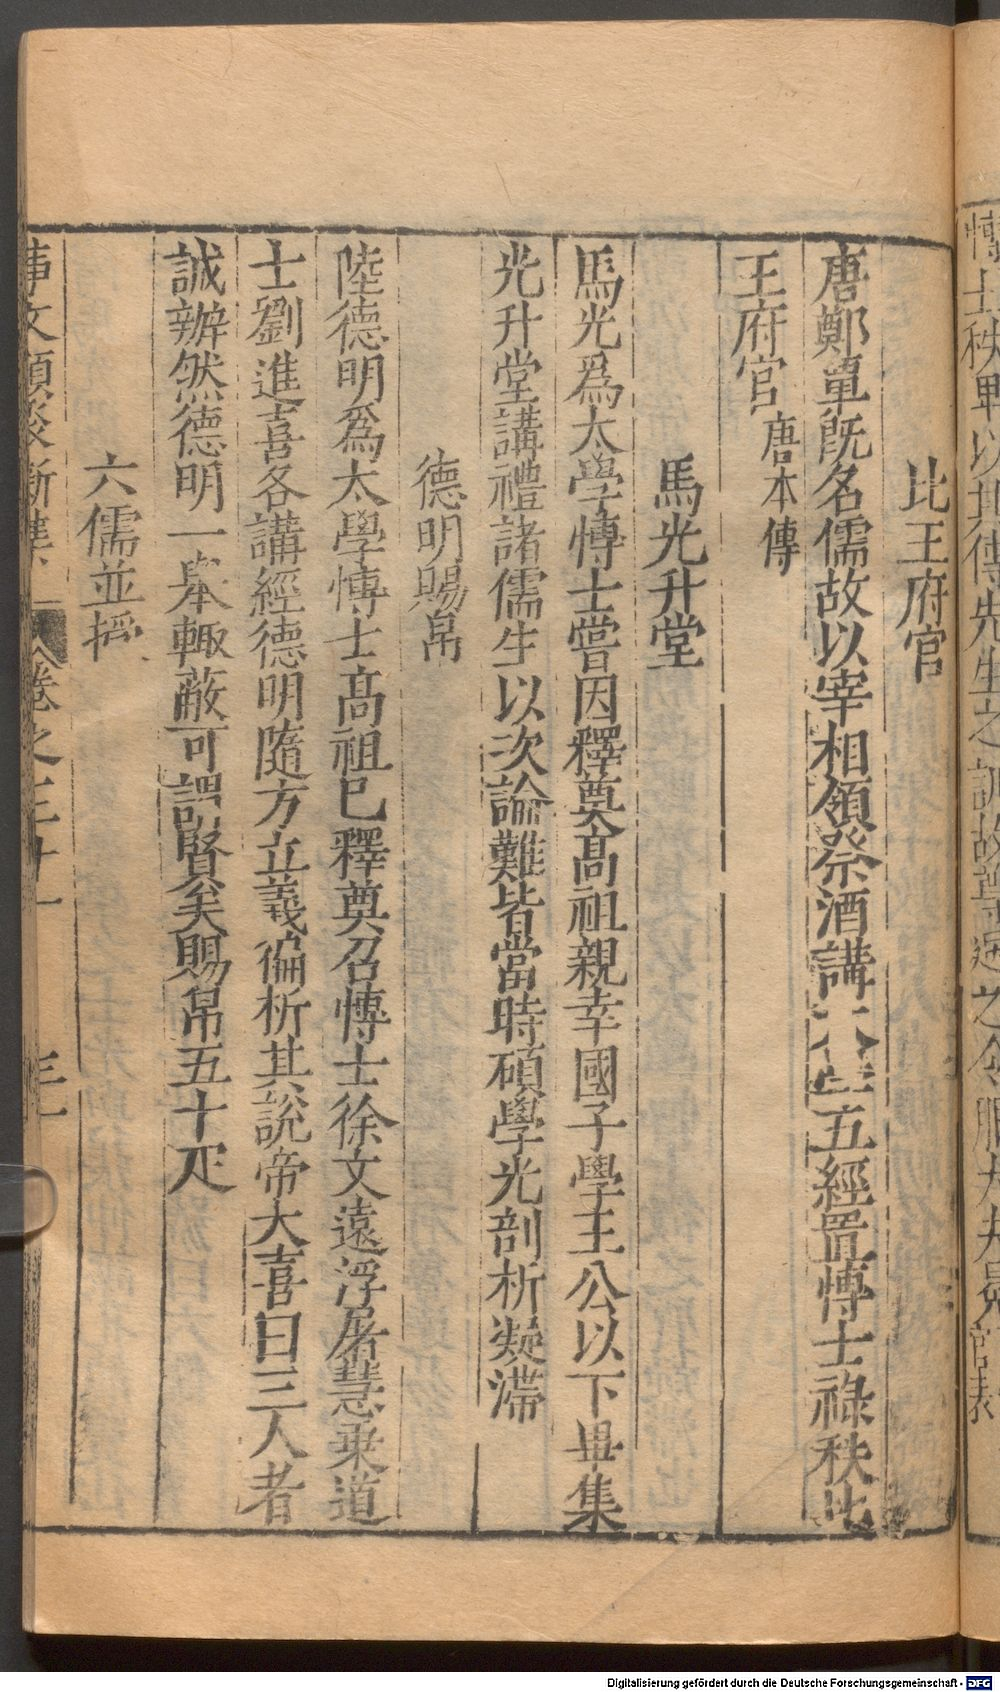 比王府官
唐鄭覃旣名儒故以宰相領祭酒講太學五經置愽士祿秩比
王府官唐本傳
馬光升堂
馬光爲太學愽士嘗因釋奠高祖親幸國子學王公以下畢集
光升堂講禮諸儒生以次論難皆當時碩學光剖析凝滯
德明賜帛
陸德明爲太學愽士高祖已釋奠召愽士徐文遠浮屠慧乗道
士劉進喜各講經德明隨方立義徧析其説帝大喜曰三人者
誠辧然德明一舉輙蔽可謂賢矣賜帛五十疋
六儒並授
事文類聚新集 卷之三十一 三
Digitalisierung gefördert durch die Deutsche Forschungsgemeinschaft - DFG